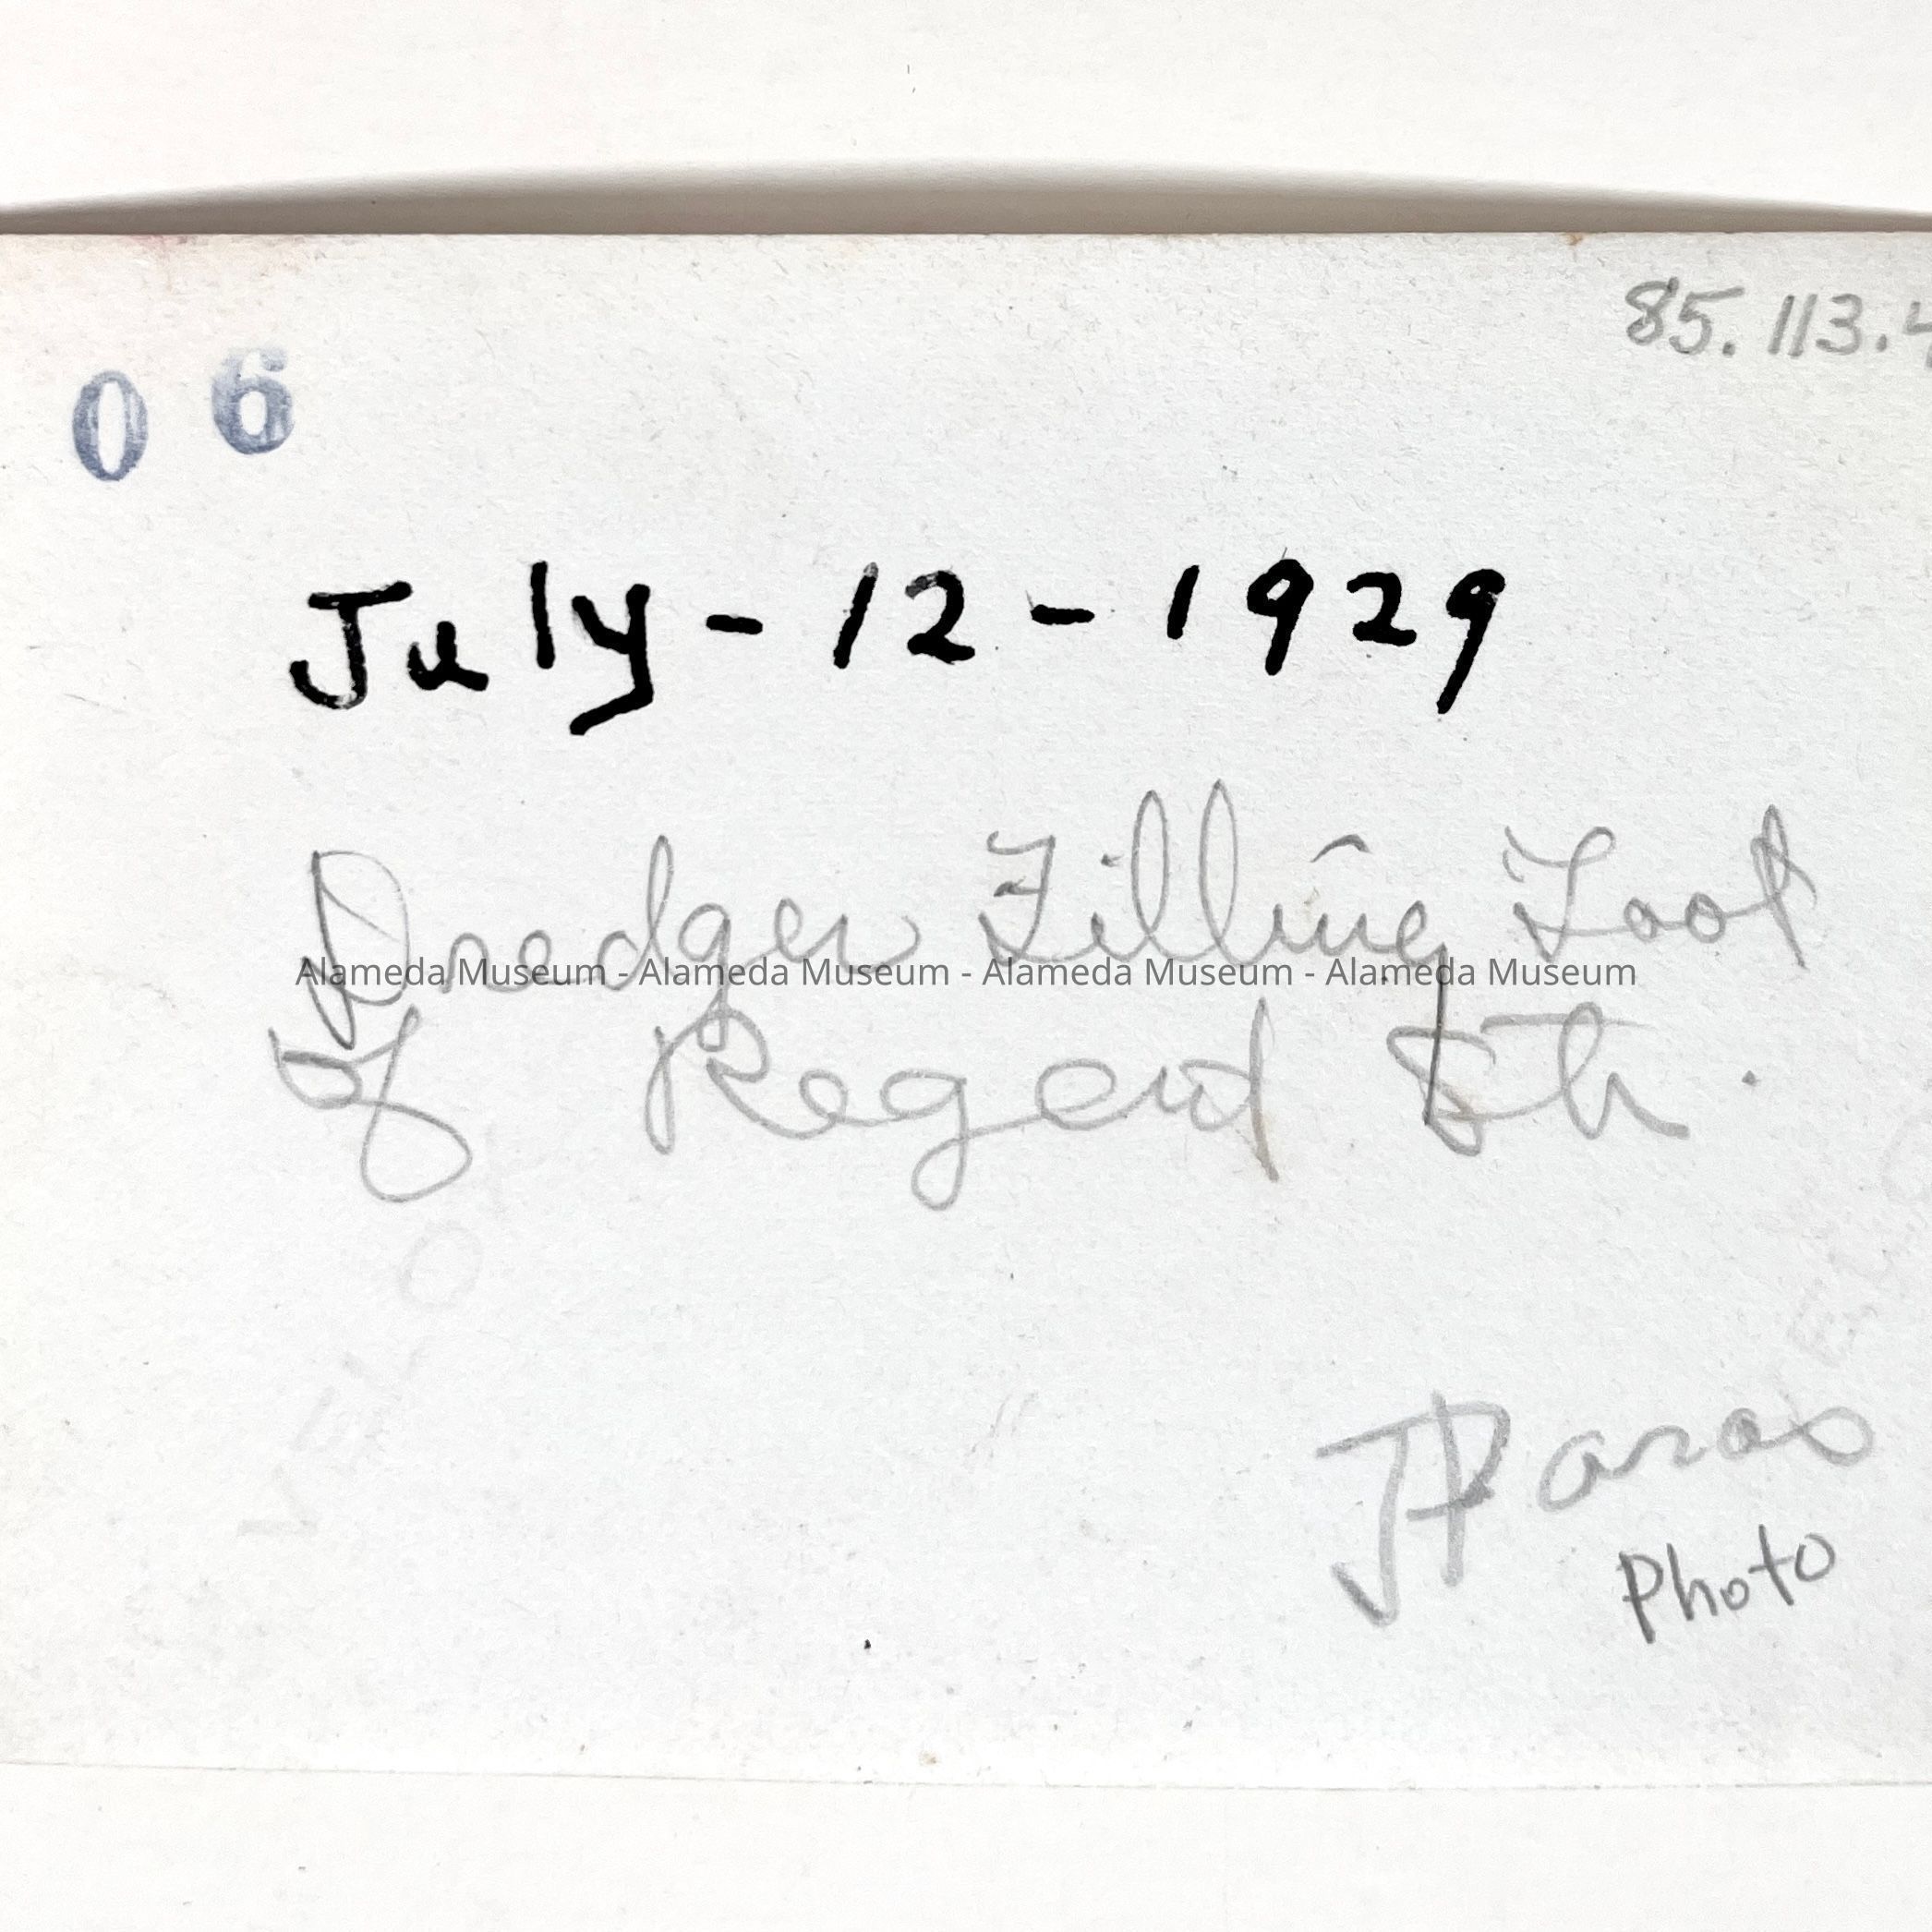 85.113.4
06
July - 12 - 1929
Dredger Filling Foot
Alameda Museum - Alameda Museum - Alameda Museum - Alameda Museum
of Regent Str.
J Paras
Photo
VELOX